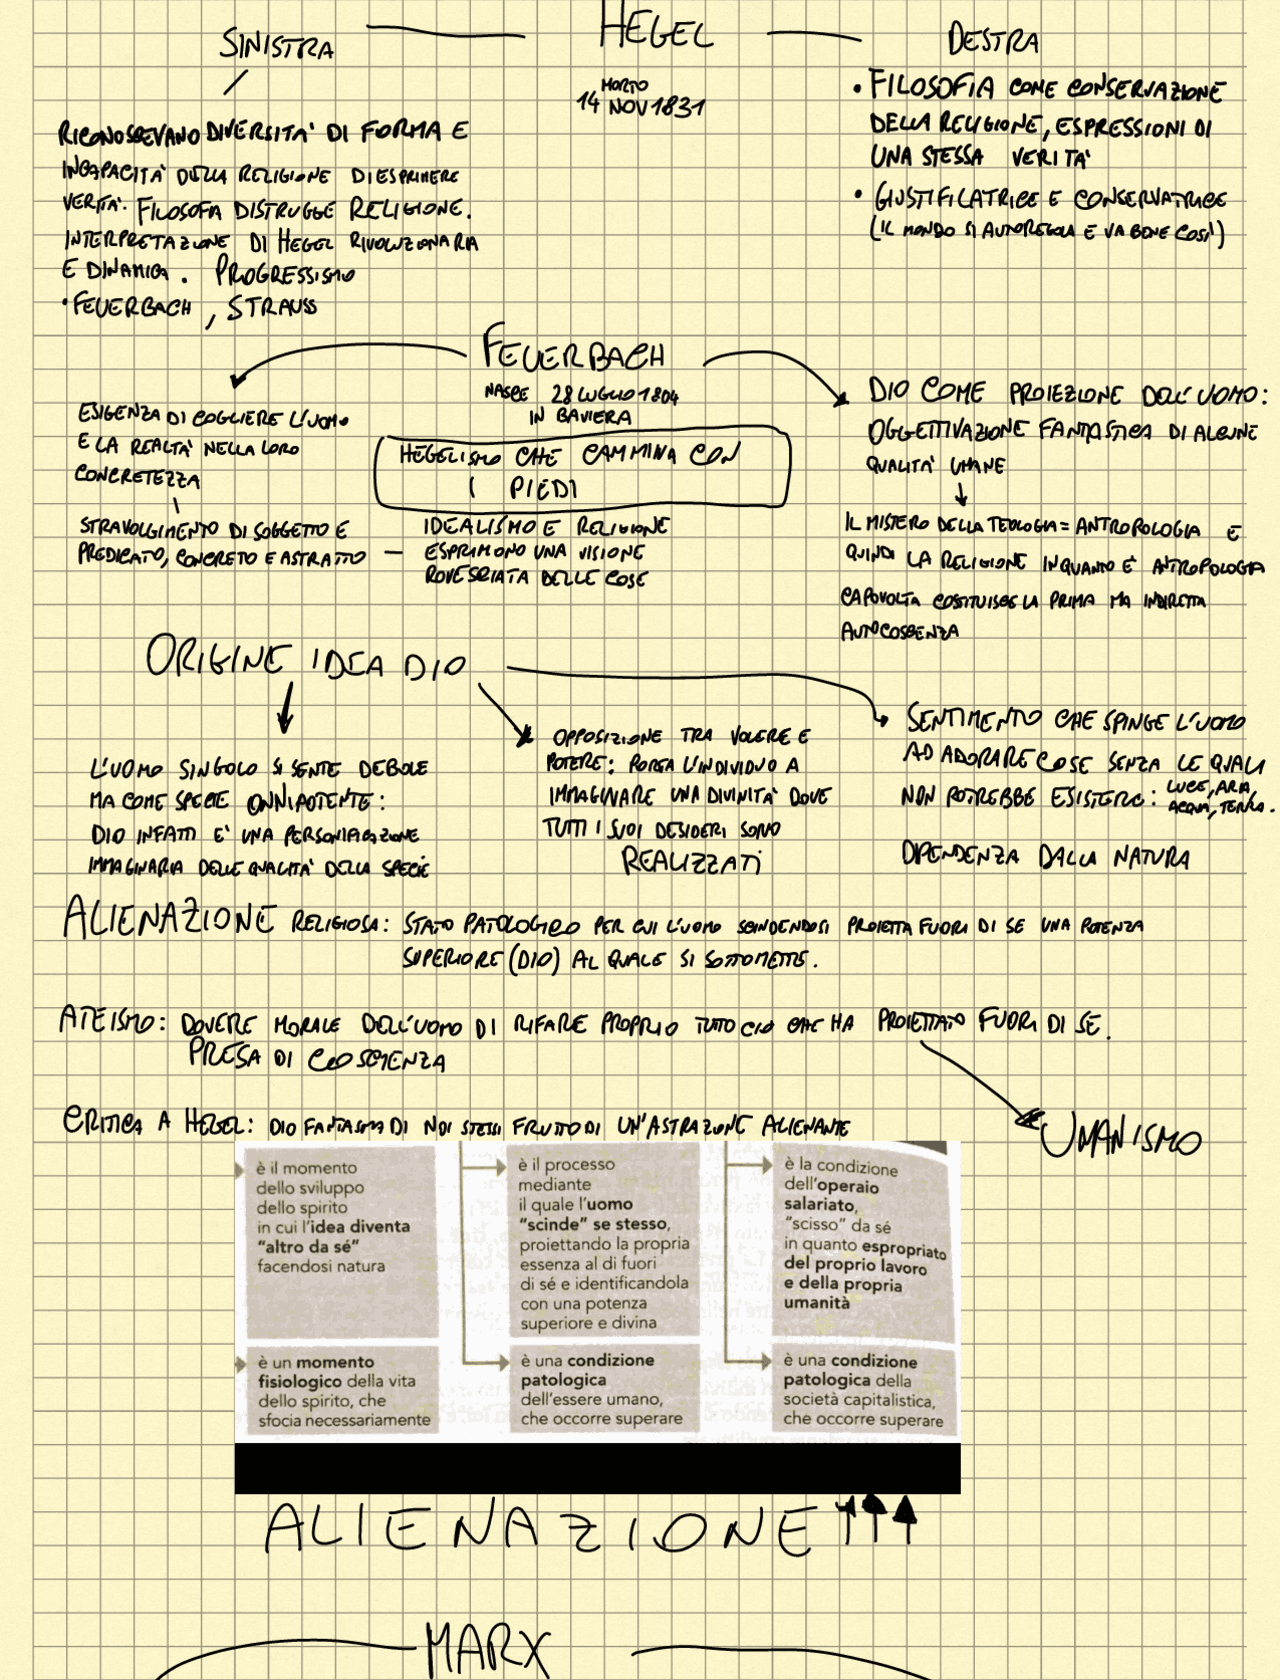 HEGEL
MORTO
14 NOV 1831
SINISTRA
RICONOSCEVANO DIVERSITA' DI FORMA E
INCAPACITA' DELLA RELIGIONE DI ESPRIMERE
VERITA'. FILOSOFIA DISTRUGGE RELIGIONE.
INTERPRETAZIONE DI HEGEL RIVOLUZIONARIA
E DINAMICA. PROGRESSISMO
• FEUERBACH, STRAUSS
DESTRA
• FILOSOFIA COME CONSERVAZIONE
DELLA RELIGIONE, ESPRESSIONI DI
UNA STESSA VERITA'
• GIUSTIFICATRICE E CONSERVATRICE
(IL MONDO SI AUTOREGOLA E VA BENE COSI')
FEUERBACH
NASCE 28 LUGLIO 1804
IN BAVIERA
HEGELISMO CHE CAMMINA CON
I PIEDI
ESIGENZA DI COGLIERE L'UOMO
E LA REALTA' NELLA LORO
CONCRETEZZA
STRAVOLGIMENTO DI SOGGETTO E
PREDICATO, CONCRETO E ASTRATTO —
IDEALISMO E RELIGIONE
ESPRIMONO UNA VISIONE
ROVESCIATA DELLE COSE
DIO COME PROIEZIONE DELL'UOMO:
OGGETTIVAZIONE FANTASTICA DI ALCUNE
QUALITA' UMANE
IL MISTERO DELLA TEOLOGIA = ANTROPOLOGIA E
QUINDI LA RELIGIONE IN QUANTO E' ANTROPOLOGIA
CAPOVOLTA COSTITUISCE LA PRIMA MA INDIRETTA
AUTOCOSCENZA
ORIGINE IDEA DIO
L'UOMO SINGOLO SI SENTE DEBOLE
MA COME SPECIE ONNIPOTENTE:
DIO INFATTI E' UNA PERSONIFICAZIONE
IMMAGINARIA DELLE QUALITA' DELLA SPECIE
OPPOSIZIONE TRA VOLERE E
POTERE: PORTA L'INDIVIDUO A
IMMAGINARE UNA DIVINITA' DOVE
TUTTI I SUOI DESIDERI SONO
REALIZZATI
SENTIMENTO CHE SPINGE L'UOMO
AD ADORARE COSE SENZA LE QUALI
NON POTREBBE ESISTERE: LUCE, ARIA,
ACQUA, TERRA.
DIPENDENZA DALLA NATURA
ALIENAZIONE RELIGIOSA: STATO PATOLOGICO PER CUI L'UOMO SCINDENDOSI PROIETTA FUORI DI SE UNA POTENZA
SUPERIORE (DIO) AL QUALE SI SOTTOMETTE.
ATEISMO: DOVERE MORALE DELL'UOMO DI RIFARE PROPRIO TUTTO CIO CHE HA PROIETTATO FUORI DI SE.
PRESA DI COOSCIENZA
UMANISMO
CRITICA A HEGEL: DIO FANTASMA DI NOI STESSI FRUTTO DI UN'ASTRAZIONE ALIENANTE
è il momento
dello sviluppo
dello spirito
in cui l'idea diventa
"altro da sé"
facendosi natura
è il processo
mediante
il quale l'uomo
"scinde" se stesso,
proiettando la propria
essenza al di fuori
di sé e identificandola
con una potenza
superiore e divina
è la condizione
dell'operaio
salariato,
"scisso" da sé
in quanto espropriato
del proprio lavoro
e della propria
umanità
è un momento
fisiologico della vita
dello spirito, che
sfocia necessariamente
è una condizione
patologica
dell'essere umano,
che occorre superare
è una condizione
patologica della
società capitalistica,
che occorre superare
ALIENAZIONE
MARX